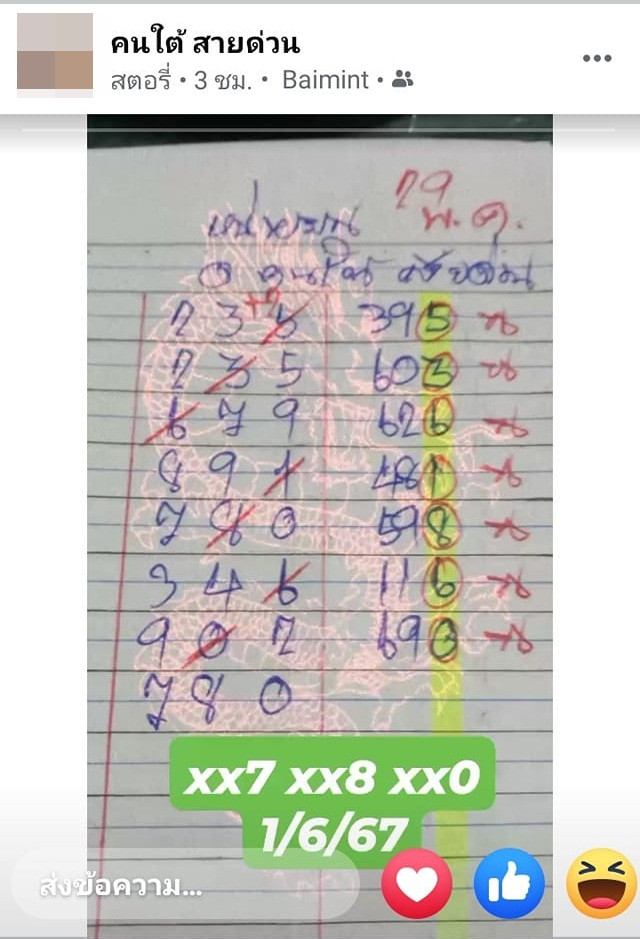 คนใต้ สายด่วน
สตอรี่ • 3 ชม. • Baimint •
29
พ.ค.
คนใต้ สายด่วน
2 3 +2 5 395 น
2 3 5 603 น
6 7 9 626 น
8 9 1 481 น
7 8 0 598 น
3 4 6 116 น
9 0 2 690 น
7 8 0
xx7 xx8 xx0
1/6/67
ส่งข้อความ...